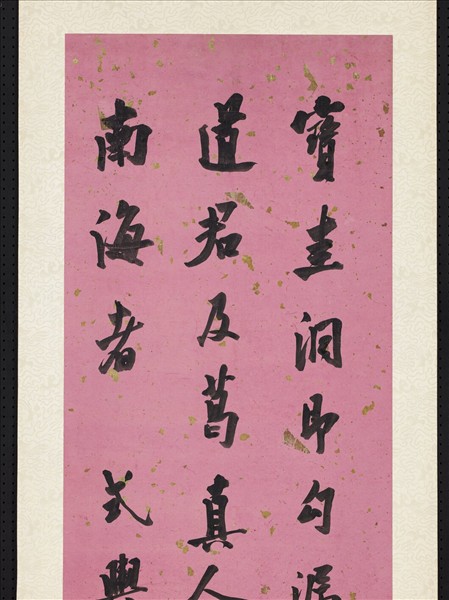 寳圭洞即勾漏
道君及葛真人
南海者式與